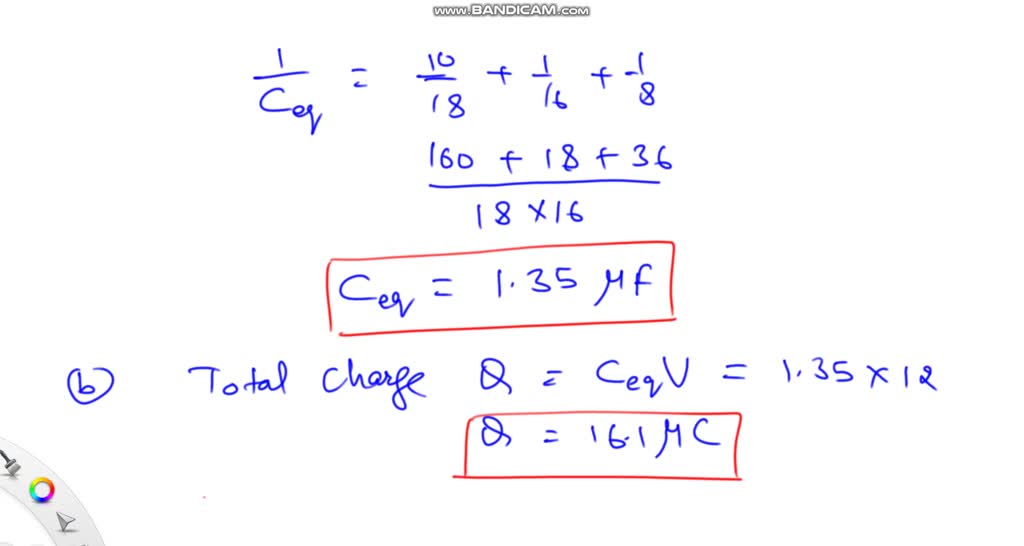 www.BANDICAM.com
1/Ceq = 10/18 + 1/16 + 1/8
160 + 18 + 36
18 × 16
Ceq = 1.35 μf
(b) Total charge Q = CeqV = 1.35 × 12
Q = 16.1 μC